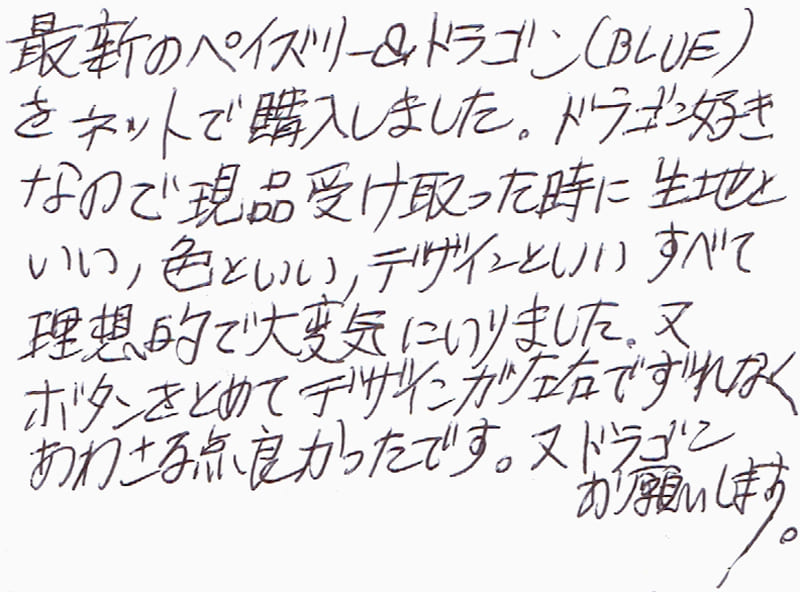 最新のペイズリー&ドラゴン(BLUE)
をネットで購入しました。ドラゴン好き
なので現品受け取った時に生地と
いい,色といい,デザインといいすべて
理想的で大変気にいりました。又
ボタンをとめてデザインが左右でずれなく
あわさる点良かったです。又ドラゴン
お願いします。